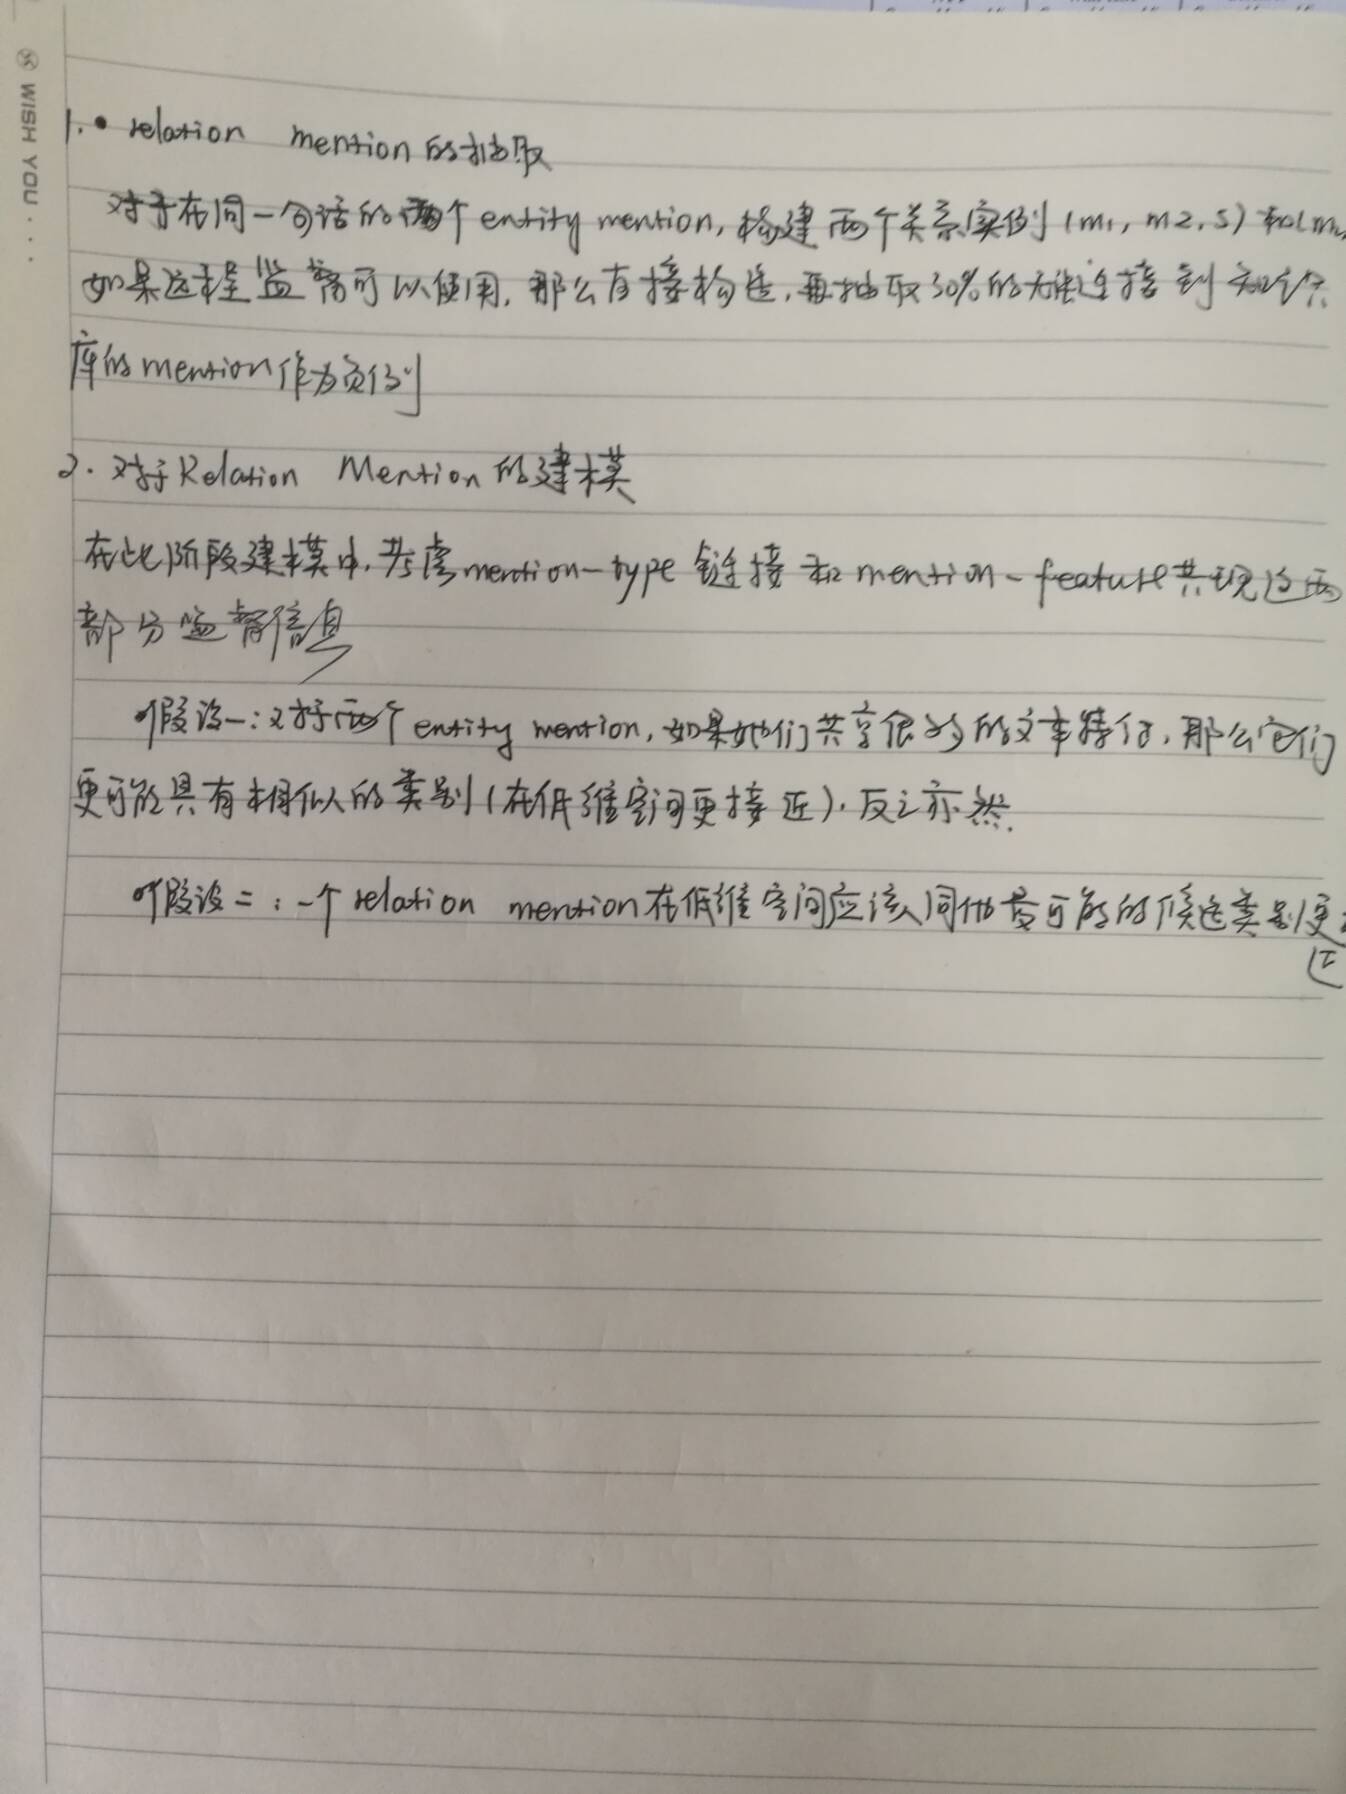 WISH YOU...
1. • relation mention的抽取
对于在同一句话的两个entity mention,构建两个关系实例(m1, m2, s)和(m
如果远程监督可以使用,那么直接构造,再抽取30%的无法连接到知识
库的mention作为负例
2. 对于Relation Mention的建模
在此阶段建模中,考虑mention-type链接和mention-feature共现这两
部分监督信息
假设一:对于两个entity mention,如果她们共享很多的文本特征,那么它们
更可能具有相似的类别(在低维空间更接近),反之亦然.
假设二:一个relation mention在低维空间应该同他最可能的候选类别更
近